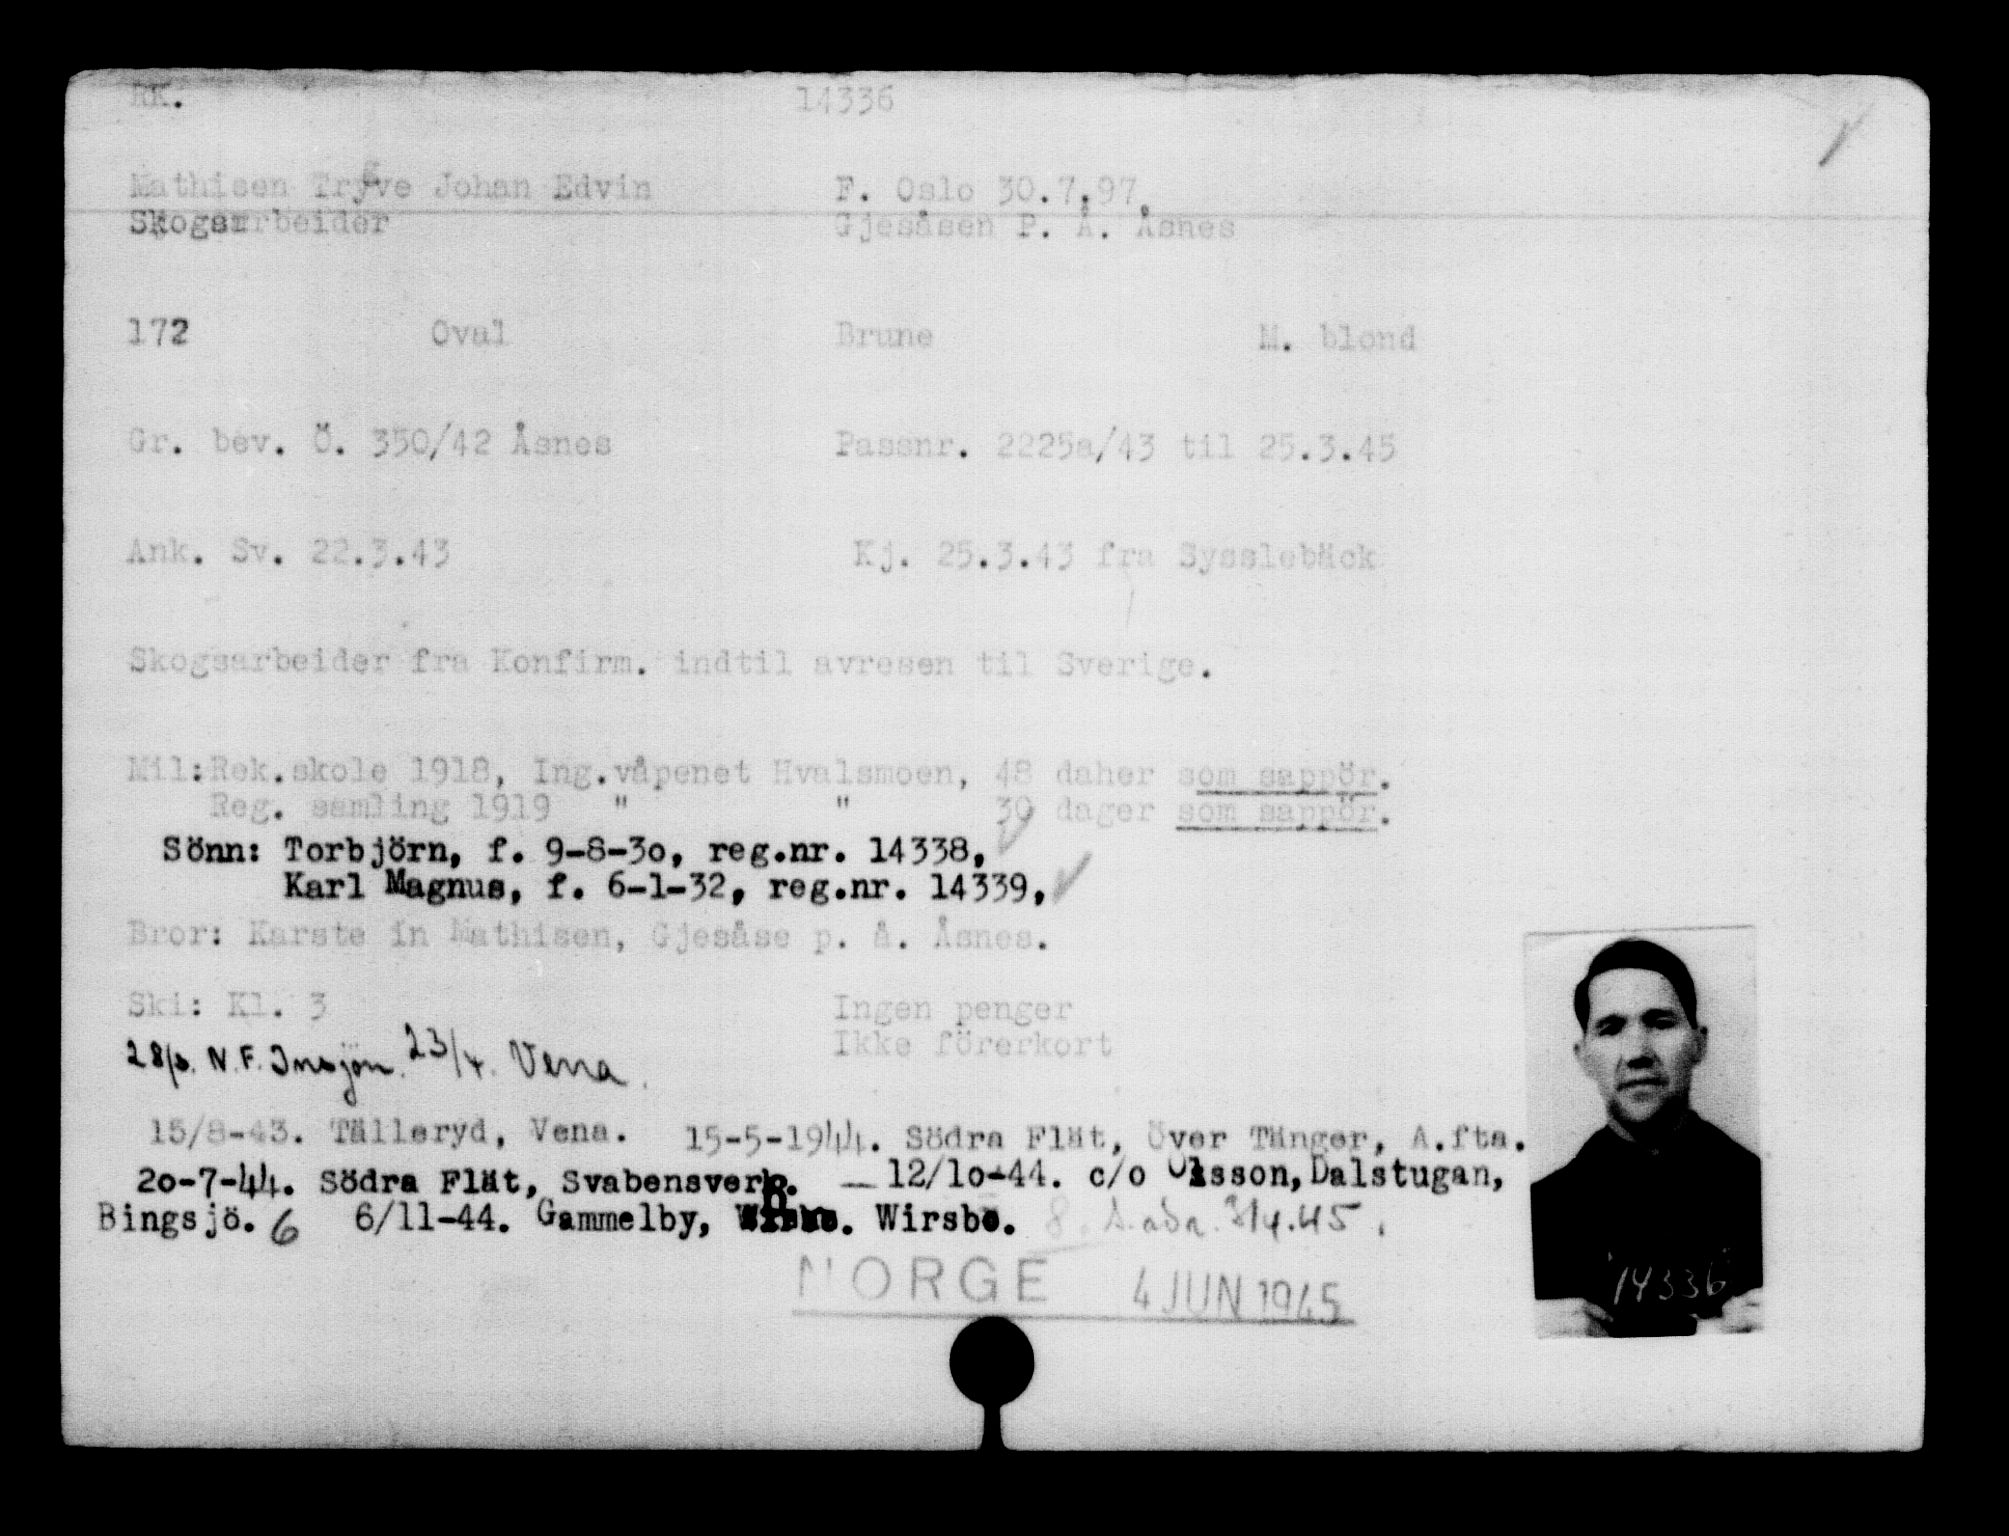 RK. 14336
Mathisen Trygve Johan Edvin F. Oslo 30.7.97.
Skogsarbeider Gjesåsen P. Å. Åsnes
172 Oval Brune M. blond
Gr. bev. Ö. 350/42 Åsnes Passnr. 2225a/43 til 25.3.45
Ank. Sv. 22.3.43 Kj. 25.3.43 fra Sysslebäck
Skogsarbeider fra Konfirm. indtil avresen til Sverige.
Mil:Rek.skole 1918, Ing.våpenet Hvalsmoen, 48 daher som sappör.
Reg. samling 1919 " " 30 dager som sappör.
Sönn: Torbjörn, f. 9-8-3o, reg.nr. 14338,
Karl Magnus, f. 6-1-32, reg.nr. 14339,
Bror: Karste in Mathisen, Gjesåse p. å. Åsnes.
Ski: Kl. 3 Ingen penger
Ikke förerkort
28/3. N.F. Insjön. 23/4. Vena.
15/8-43. Tälleryd, Vena. 15-5-1944. Södra Flät, Över Tänger, A.fta.
2o-7-44. Södra Flät, Svabensverk. — 12/1o-44. c/o Olsson, Dalstugan,
Bingsjö. 6 6/11-44. Gammelby, Wirsbo. 8. 4.45.
NORGE 4 JUN 1945
14336